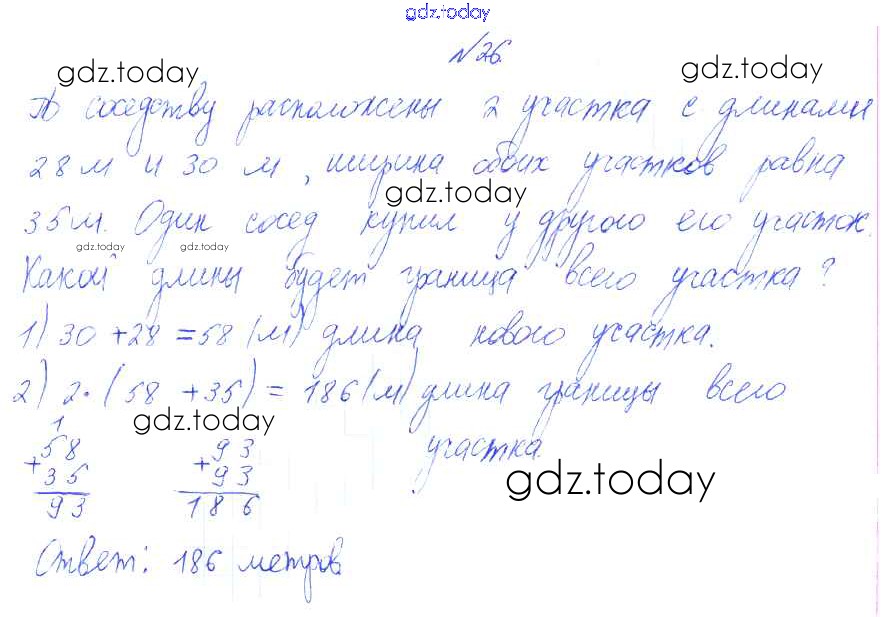 gdz.today
№26.
gdz.today gdz.today
По соседству расположены 2 участка с длинами
28 м и 30 м, ширина обоих участков равна
gdz.today
35 м. Один сосед купил у другого его участок.
gdz.today gdz.today
Какой длины будет граница всего участка?
1) 30 + 28 = 58 (м) длина нового участка.
2) 2 · (58 + 35) = 186 (м) длина границы всего
участка.
gdz.today
1
+ 58
35
93
+ 93
93
186
gdz.today
Ответ: 186 метров